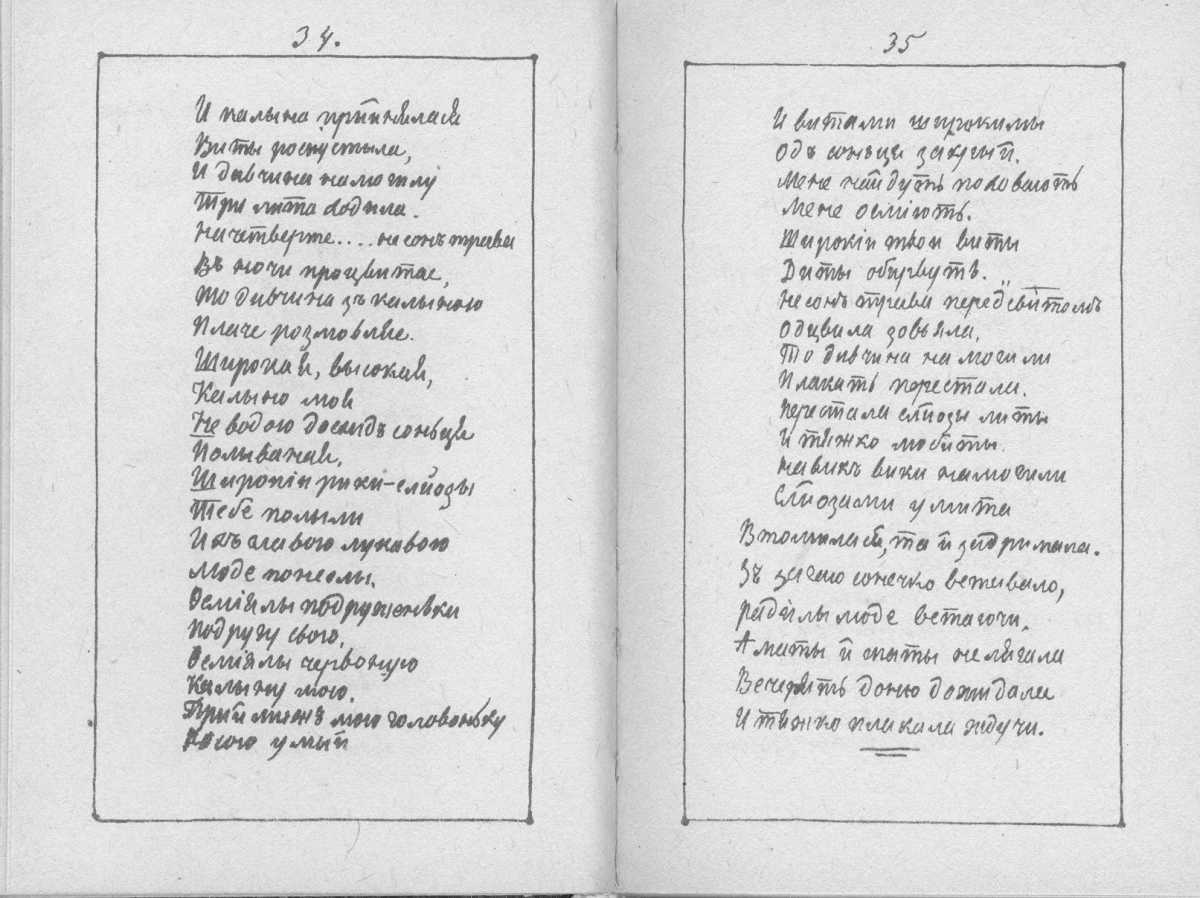 34.
И калына прыйнялася
Виты роспустыла,
И дивчина на могилу
Тры лита ходила.
На четверте.... не сонъ трава
Въ ночи процвитае,
То дивчина зъ калыною
Плаче розмовляе.
Широкая, высокая,
Калыно моя
Не водою до схидъ соньця
Полываная,
Широкіи рики-слйозы
Тебе полыли
Ихъ славою лукавою
Люде понеслы.
Осміялы подруженьки
Подругу свою,
Осміялы червоную
Калыну мою.
Прыйми мою головоньку
Росою умый
35
И витами широкимы
Одъ соньця закрый.
Мене найдутъ поховаютъ
Мене осміютъ.
Широкіи твои виты
Диты обирвутъ.
Не сонъ трава передъ свитомъ
Одцвила зовъяла,
То дивчина на могили
Плакать перестала.
Перестала слйозы литы
И тяжко любиты.
На викъ вики на могили
Слйозами умита
Втомилася, та й задримала.
Зъ за гаю сонечко вставало,
Радилы люде встаючи.
А маты й спаты не лягала
Вечерять доню дожидала
И тяжко плакала ждучи.